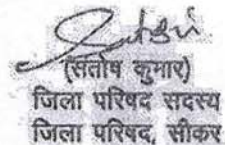 (संतोष कुमार)
जिला परिषद सदस्य
जिला परिषद, सीकर